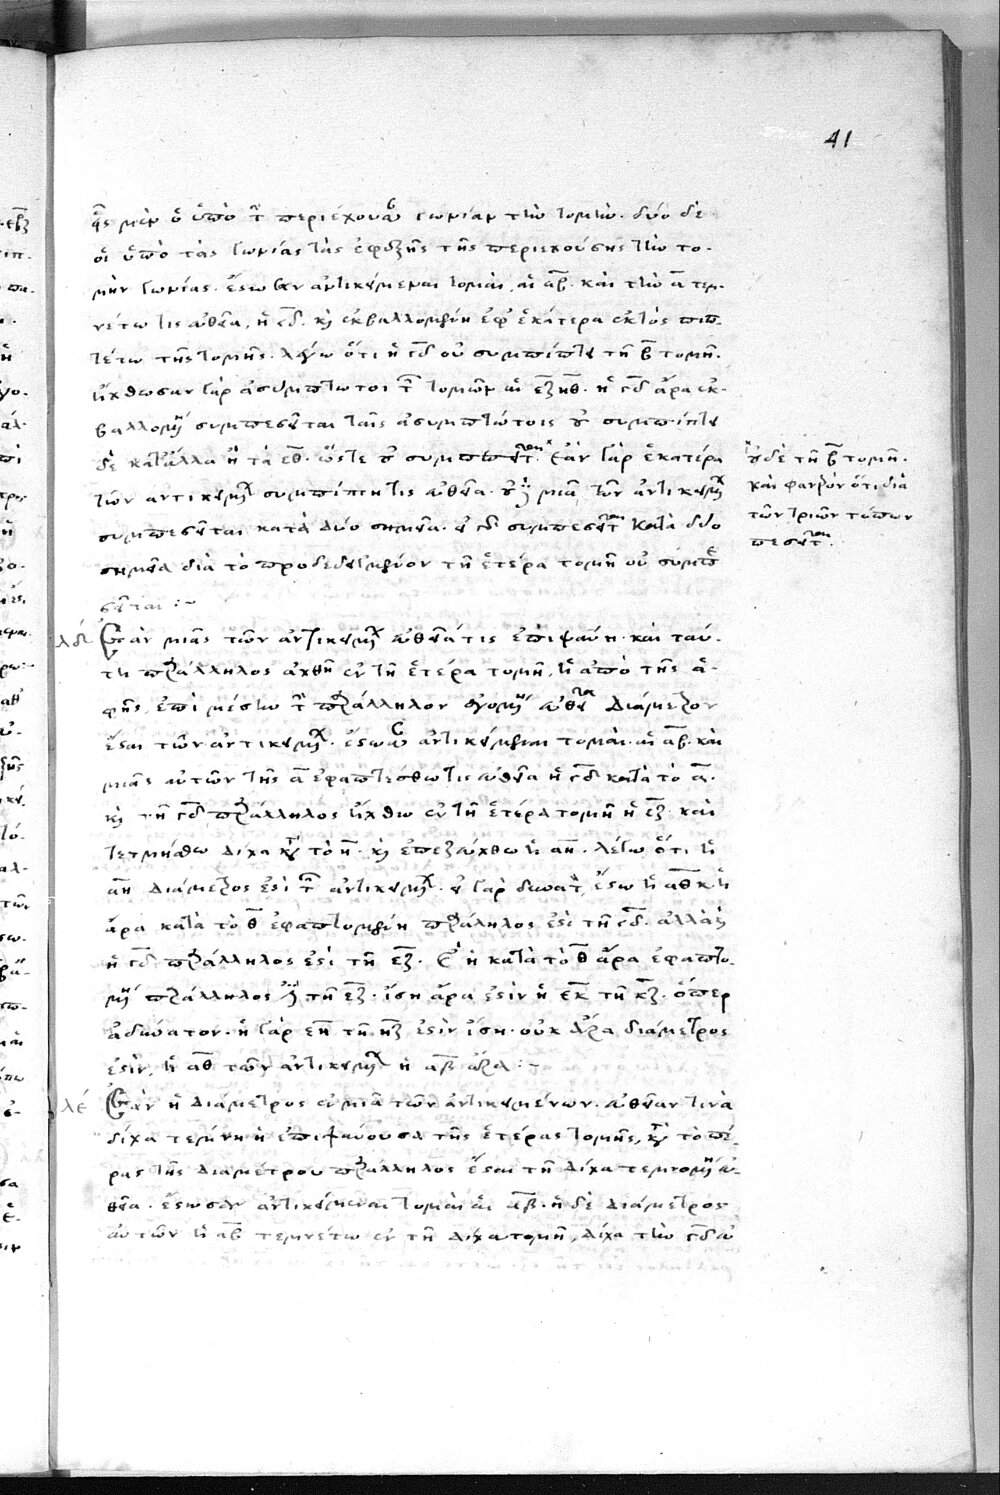 41
εἷς μὲν ὁ ὑπὸ τ̑ περιέχουσαν γωνίαν τὴν τομὴν. δύο δὲ
οἱ ὑπὸ τὰς γωνίας τὰς ἐφεξῆς τῆς περιεχούσης τὴν το-
μὴν γωνίας. ἔστωσαν ἀντικείμεναι τομαὶ, αἱ αβ. καὶ τὴν α τεμ-
νέτω τις εὐθεῖα, ἡ γδ. κỳ ἐκβαλλομένη ἐφ' ἑκάτερα ἐκτὸς πιπ-
τέτω τῆς τομῆς. λέγω ὅτι ἡ γδ οὐ συμπίπτει τῆ β τομῆ.
ἤχθωσαν γὰρ ἀσύμπτωτοι τ̑ τομῶν αἱ εζ ηθ. ἡ γδ ἄρα ἐκ-
βαλλομένη συμπεσεῖται ταῖς ἀσυμπτώτοις οὐ συμπίπτει
δὲ κατάλλα ἢ τὰ εθ. ὥστε οὐ συμπεσεῖται Ἐὰν γὰρ ἑκατέρα
τῶν ἀντικειμένων συμπίπτη τις εὐθεῖα. οὐδεμιᾶ τῶν ἀντικειμένων
συμπεσεῖται κατὰ δύο σημεῖα. εἰ γὰρ συμπεσεῖται κατὰ δύο
σημεῖα διὰ τὸ προδεδειγμένον τῆ ἑτέρα τομῆ οὐ συμπε
σεῖται :~
οὐδὲ τῆ β τομῆ.
καὶ φανερὸν ὅτι διὰ
τῶν τριῶν τόπων
πεσεῖται.
λδ Ἐὰν μιᾶς τῶν ἀντικειμένων εὐθεῖά τις ἐπιψαύη. καὶ ταύ-
τη παράλληλος ἀχθῆ ἐν τῆ ἑτέρα τομῆ, ἡ ἀπὸ τῆς ἁ-
φῆς, ἐπὶ μέσην τ̑ παράλληλον ἀγομένη εὐθεῖα διάμετρον
ἔσται τῶν ἀντικειμένων. ἔστωσαν ἀντικείμεναι τομαὶ. αἱ αβ. καὶ
μιᾶς αὐτῶν τῆς α ἐφαπτέσθω τις εὐθεῖα ἡ γδ κατὰ τὸ α.
κỳ τῆ γδ παράλληλος ἤχθω ἐν τῆ ἑτέρα τομῆ ἡ εζ. καὶ
τετμήσθω δίχα κατὰ τὸ η. κỳ ἐπεζεύχθω ἡ αη. λέγω ὅτι ἡ
αη διάμετρος ἐστὶ τ̑ ἀντικειμένων. εἰ γὰρ δυνατὸν, ἔστω ἡ αθκ ἡ
ἄρα κατὰ τὸ θ ἐφαπτομένη παράλληλος ἐστὶ τῆ γδ. ἀλλὰ κỳ
ἡ γδ παράλληλος ἐστὶ τῆ εζ. καὶ ἡ κατὰ τὸ θ ἄρα ἐφαπτο-
μένη παράλληλος ἐστὶ τῆ εζ. ἴση ἄρα ἐστὶν ἡ εκ τῆ κζ. ὅπερ
ἀδύνατον. ἡ γὰρ εη τῆ ηζ ἐστὶν ἴση. οὐκ ἄρα διάμετρος
ἐστὶν, ἡ αθ τῶν ἀντικειμένων ἡ αβ ἄρα :~
λε Ἐὰν ἡ διάμετρος ἐν μιᾶ τῶν ἀντικειμένων. εὐθεῖαν τινὰ
δίχα τέμνη ἡ ἐπιψαύουσα τῆς ἑτέρας τομῆς, κατὰ τὸ πέ-
ρας τῆς διαμέτρου παράλληλος ἔσται τῆ δίχα τεμνομένη εὐ-
θεῖα. ἔστωσαν ἀντικείμεναι τομαὶ αἱ αβ. ἡ δὲ διάμετρος
αὐτῶν ἡ αβ τεμνέτω ἐν τῆ δίχα τομῆ, δίχα τὴν γδ εὐ